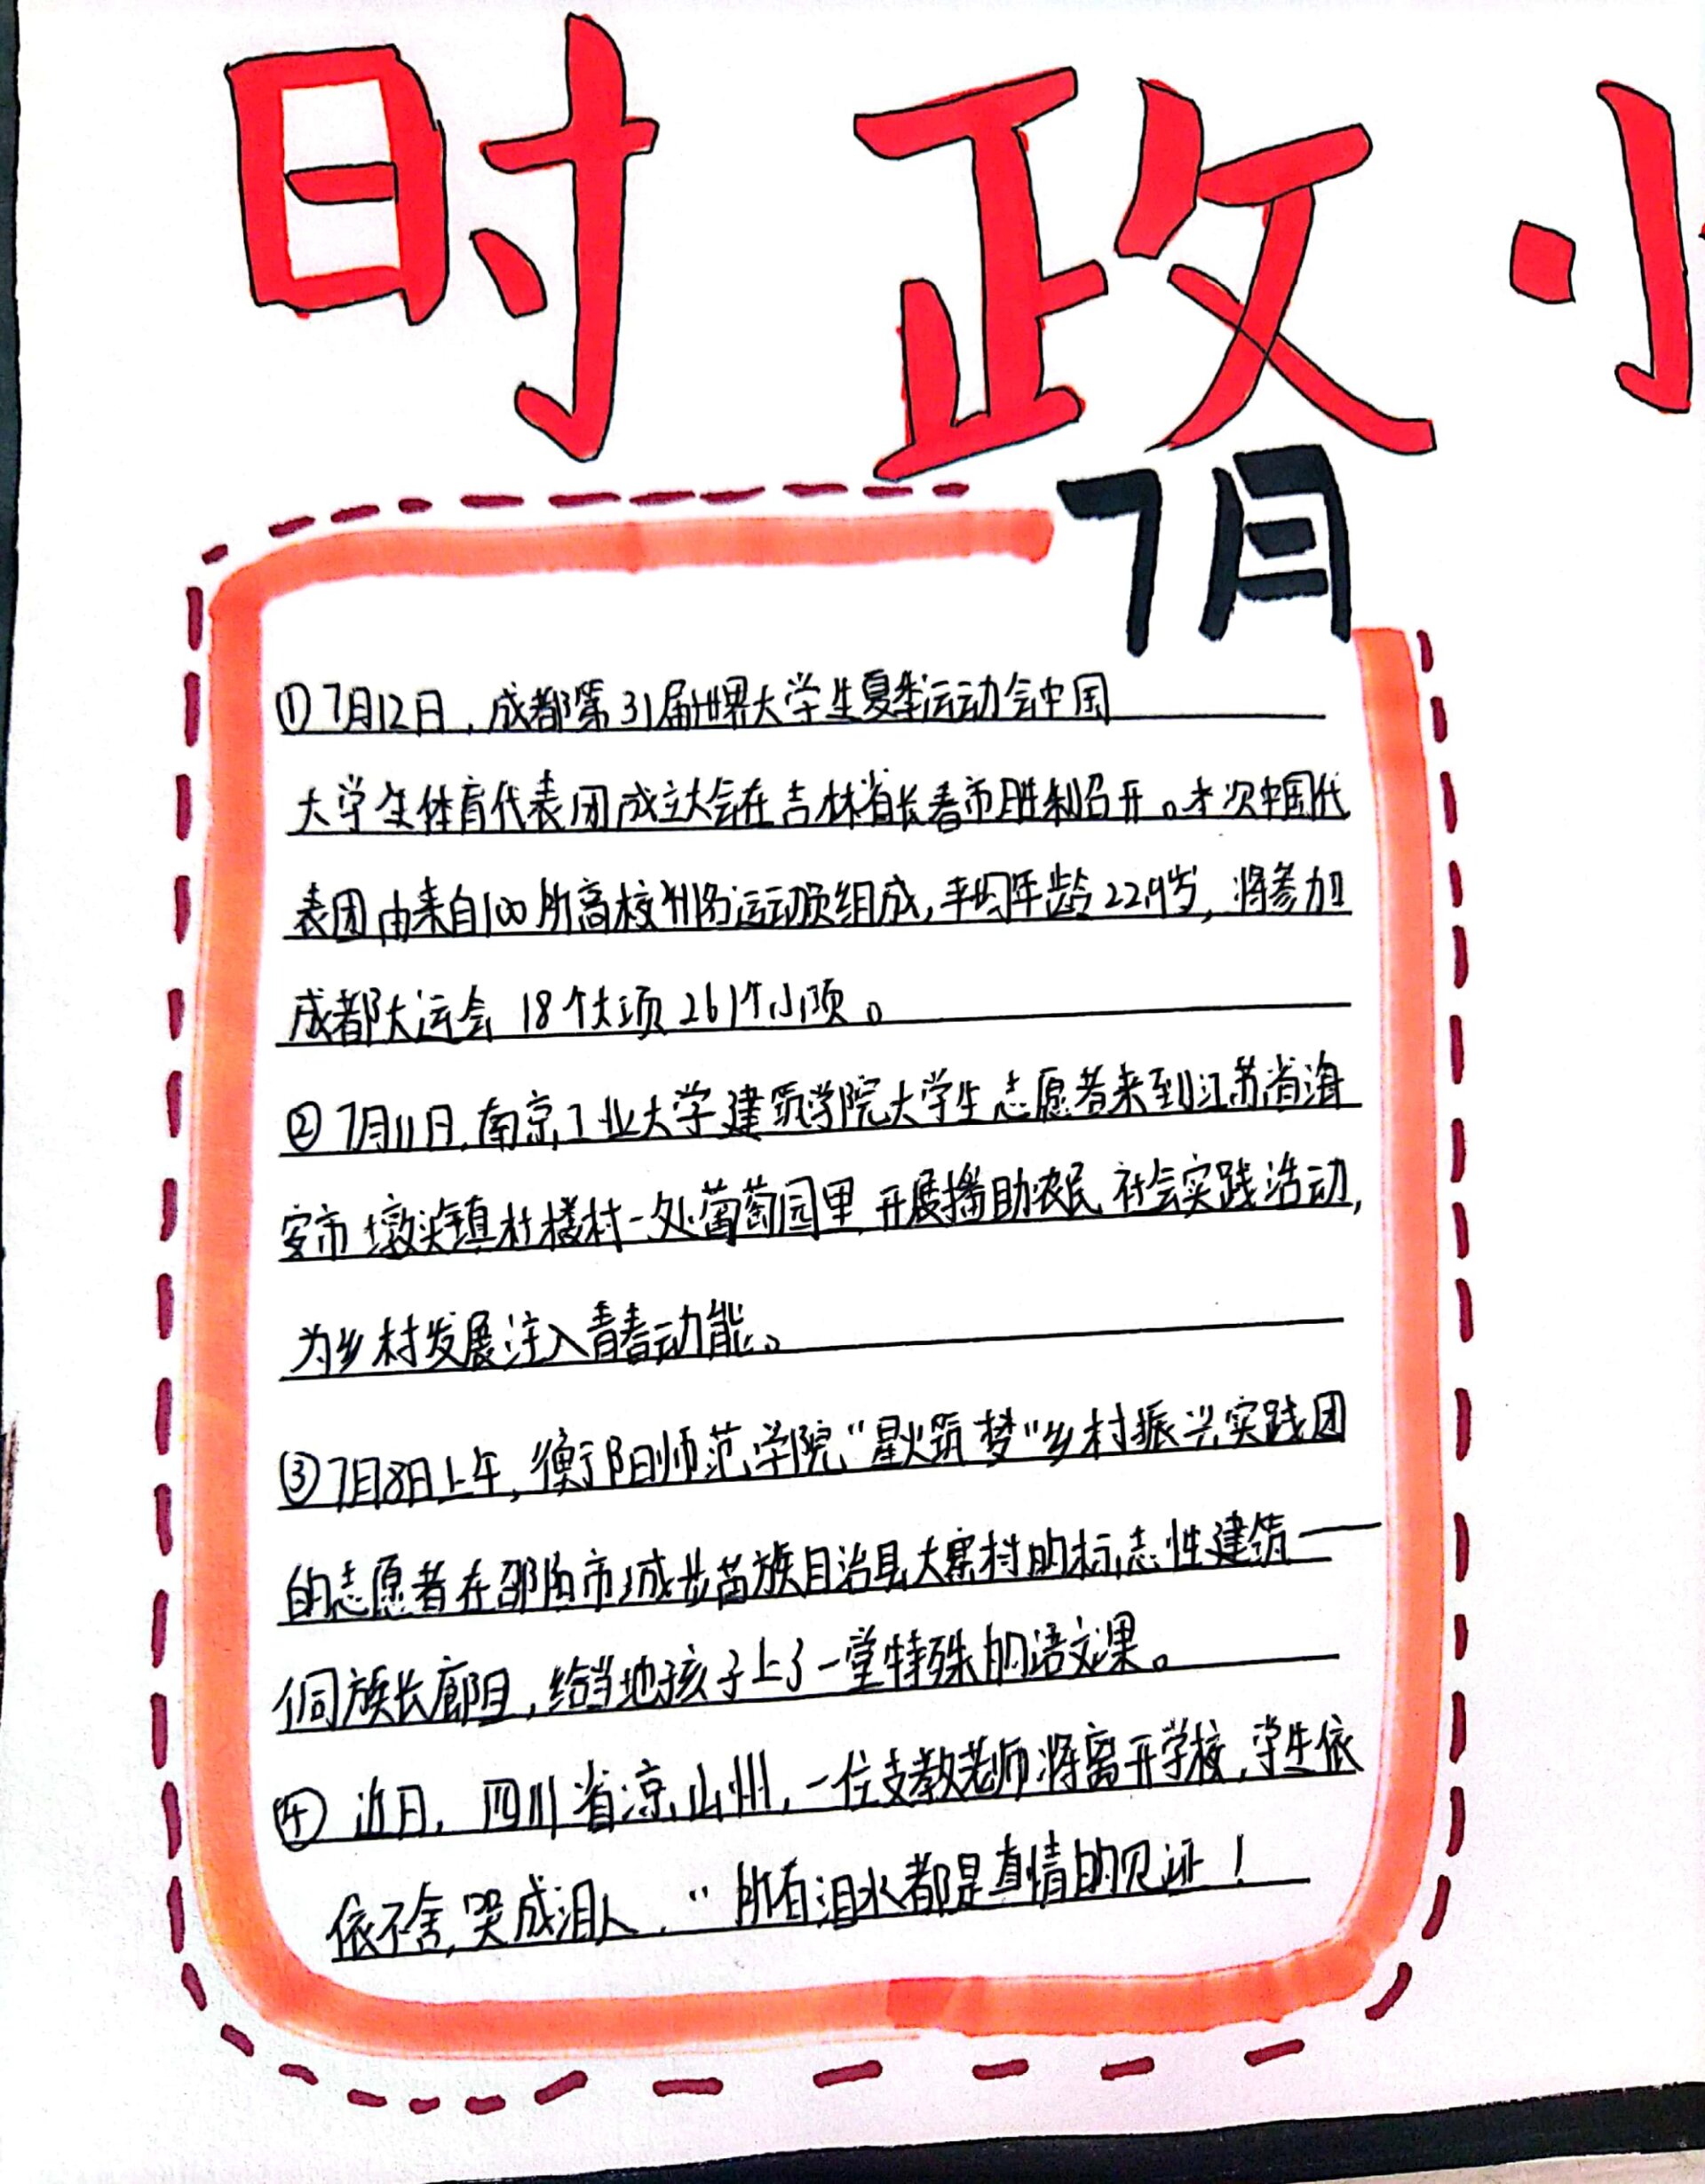 时政小
7月
①7月12日,成都第31届世界大学生夏季运动会中国
大学生体育代表团成立大会在吉林省长春市胜利召开。本次中国代
表团由来自100所高校的运动员组成,平均年龄22.9岁,将参加
成都大运会18个大项261个小项。
②7月11日,南京工业大学建筑学院大学生志愿者来到江苏省海
安市墩头镇杜楼村一处葡萄园里,开展助农民社会实践活动,
为乡村发展注入青春动能。
③7月8日上午,衡阳师范学院“星火筑梦”乡村振兴实践团
的志愿者在邵阳市城步苗族自治县大寨村的标志性建筑——
侗族长廊里,给当地孩子上了一堂特殊的语文课。
④近日,四川省凉山州,一位支教老师将离开学校,学生依
依不舍,哭成泪人,“所有泪水都是真情的见证!